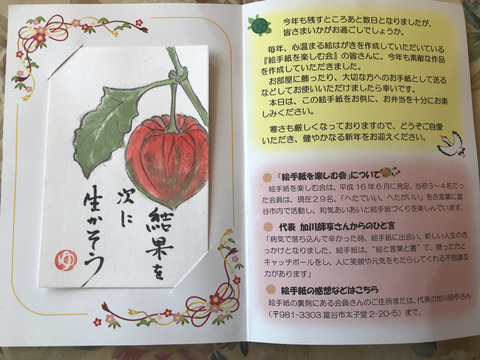 結果を
次に
生かそう
ゆ
今年も残すところあと数日となりましたが、
皆さまいかがお過ごしでしょうか。
毎年、心温まる絵はがきを作成していただいている
『絵手紙を楽しむ会』の皆さんに、今年も素敵な作品
を作成していただきました。
お部屋に飾ったり、大切な方へのお手紙として送る
などしてお使いいただけましたら幸いです。
本日は、この絵手紙をお供に、お弁当を十分にお楽
しみください。
寒さも厳しくなっておりますので、どうぞご自愛
いただき、健やかなる新年をお迎えください。
●「絵手紙を楽しむ会」について
絵手紙を楽しむ会は、平成16年6月に発足。当初3~4名だっ
た会員は、現在29名。「へたでいい、へたがいい」を合言葉に富
谷市内で活動し、和気あいあいと絵手紙づくりを楽しんでいます。
● 代表 加川師亨さんからのひと言
「病気で落ち込んで辛かった時、絵手紙に出会い、新しい人生のき
っかけとなりました。絵手紙は、“絵と言葉と書”で、贈った方と
キャッチボールをし、人に笑顔や元気をもたらしてくれる不思議な
力があります」
● 絵手紙の感想などはこちら
絵手紙の裏側にある会員さんのご住所または、代表の加川師亨さん
(〒981-3303 富谷市太子堂 2-20-5)まで。